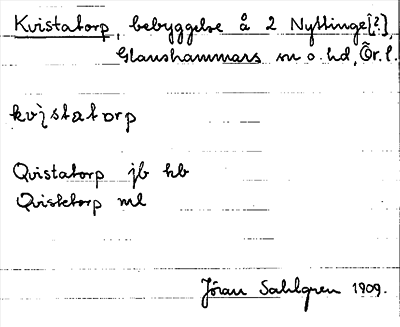 Kvistatorp, bebyggelse å 2 Nyttinge[?],
Glanshammars sn o. hd, Ör. l.
kvistatorp
Qvistatorp jb hb
Qvistetorp ml
Jöran Sahlgren 1909.